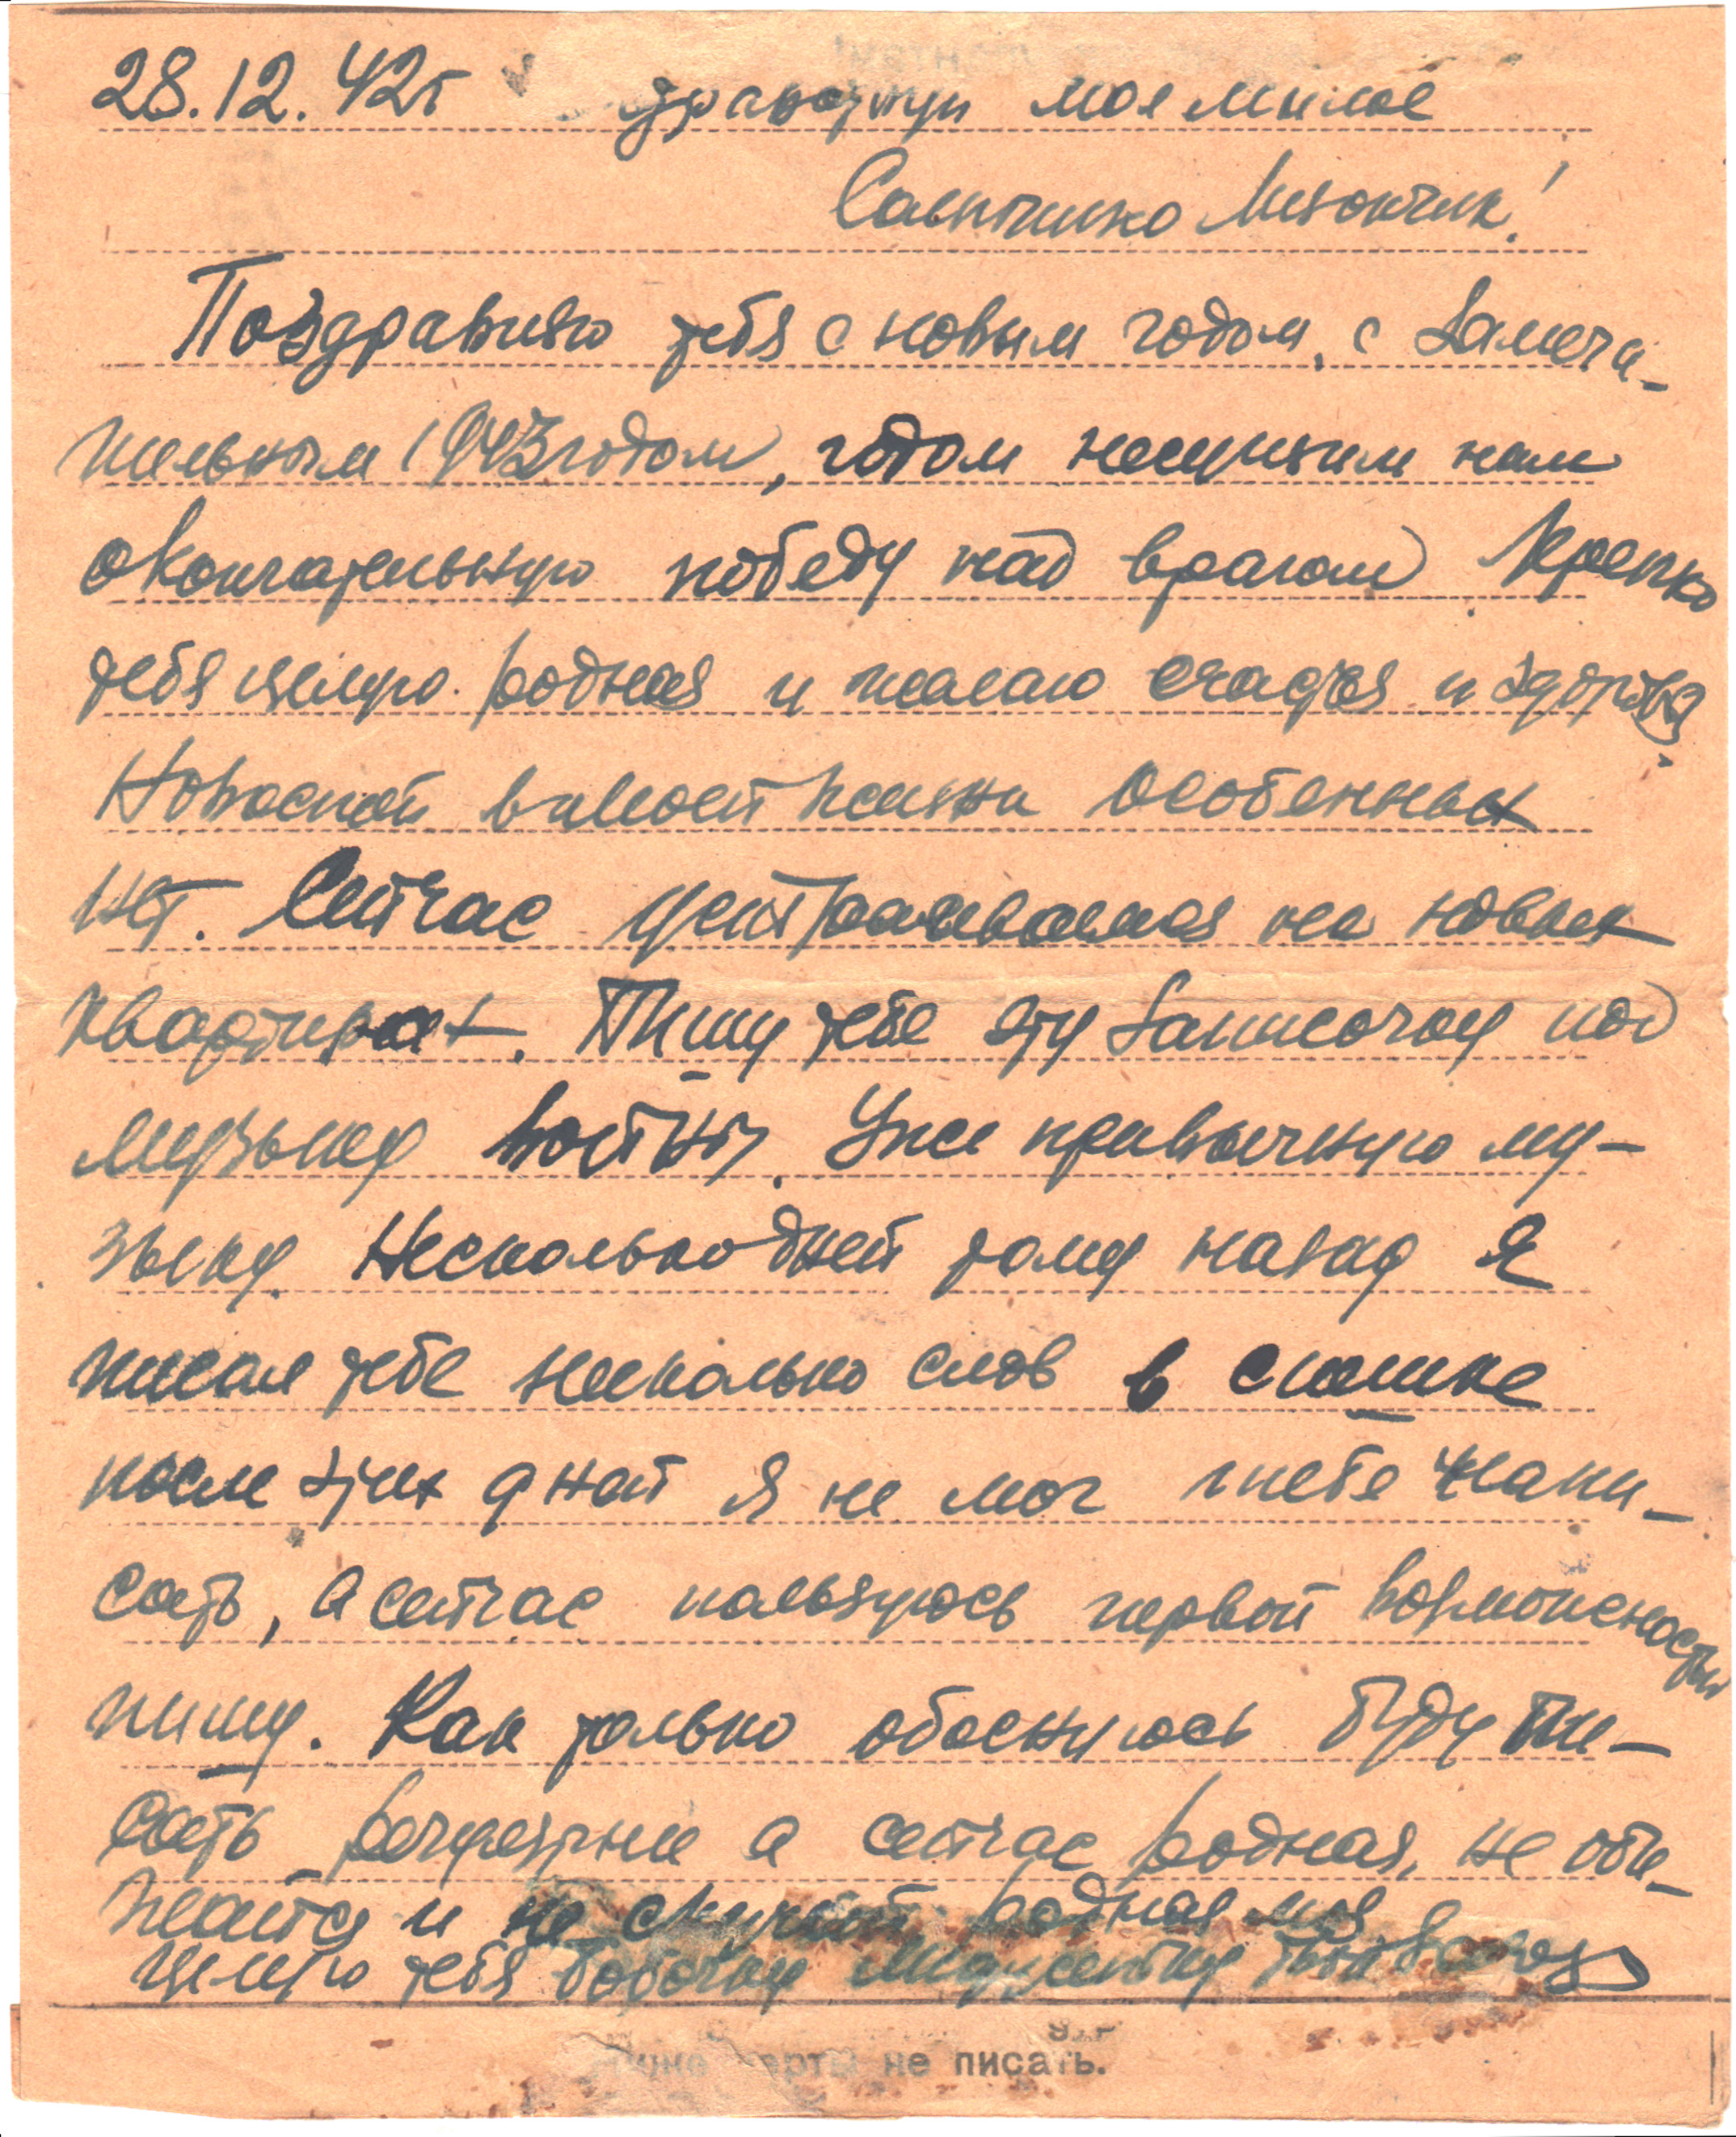 28.12.42г здравствуй моя милая
Солнышко Лизончик!
Поздравляю тебя с новым годом, с замеча-
тельным 1943 годом, годом несущим нам
окончательную победу над врагом. Крепко
тебя целую родная и желаю счастья и здоровья
Новостей в моей жизни особенных
нет. Сейчас устраиваемся на новых
квартирах. Пишу тебе эту записочку под
музыку войны. Уже привычную му-
зыку. Несколько дней тому назад я
писал тебе несколько слов в спешке
после этих дней я не мог тебе напи-
сать, а сейчас пользуюсь первой возможностью
пишу. Как только обоснуюсь буду пи-
сать а сейчас родная, не оби-
жайся и не скучай родная моя
целую тебя твой
не писать.